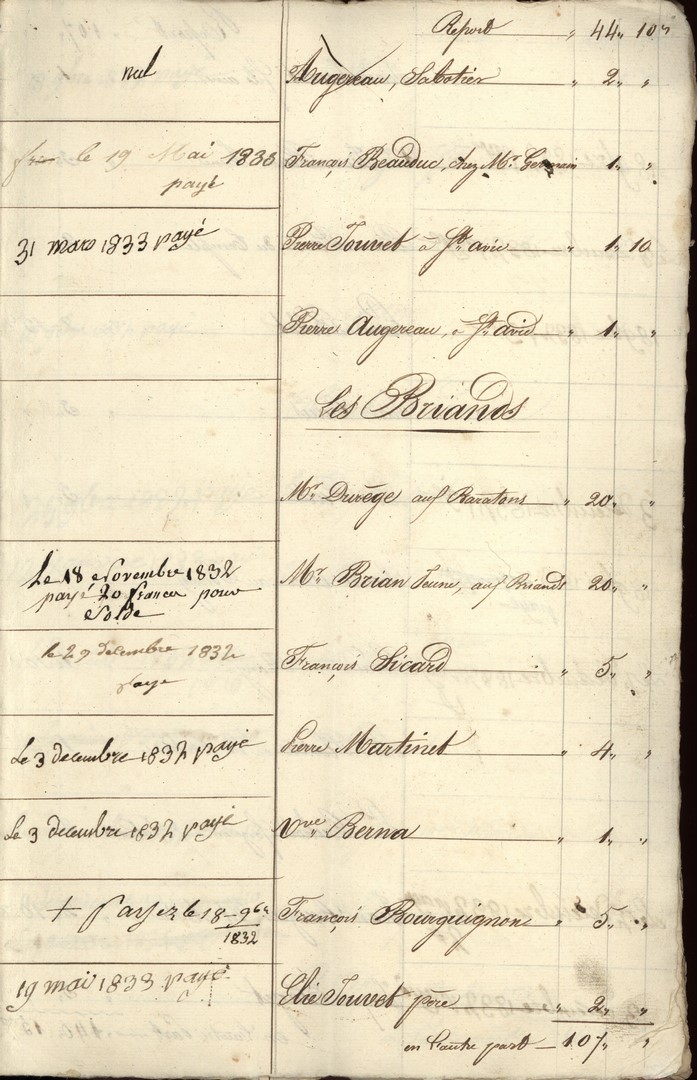 Report „ 44„ 10„
nul Augereau, Sabotier „ 2„ „
le 19 Mai 1833 François Beauduc, chez Mr Germain 1„ „
payé
31 mars 1833 payé Pierre Jouvet à Ste avie „ 1„ 10
Pierre Augereau, à St avid „ 1„ „
Les Briands
Mr Durège aux Baratons „ 20„ „
Le 18 Novembre 1832 Mr Brian Jeune, aux Briands 20„ „
payé 20 francs pour
Solde
le 29 decembre 1832 François Sicard „ 5„ „
paye
Le 3 decembre 1832 payé Pierre Martinet „ 4„ „
Le 3 decembre 1832 payé Vve Berna „ 1„ „
+ payez le 18 9bre François Bourguignon „ 5„ „
1832
19 mai 1833 payé Elie Jouvet père „ 2„ „
en l'autre part 107„ „